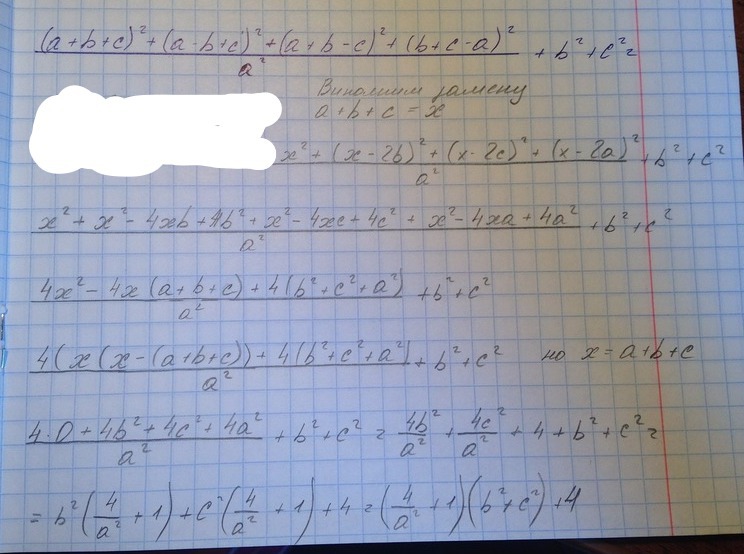 ((a+b+c)²+(a-b+c)²+(a+b-c)²+(b+c-a)²)/a² + b²+c² =
Виполним замену
a+b+c = x
(x²+(x-2b)²+(x-2c)²+(x-2a)²)/a² + b²+c²
(x²+x²-4xb+4b²+x²-4xc+4c²+x²-4xa+4a²)/a² + b²+c²
(4x²-4x(a+b+c)+4(b²+c²+a²))/a² + b²+c²
(4(x(x-(a+b+c))+4(b²+c²+a²))/a² + b²+c² но x=a+b+c
(4·0+4b²+4c²+4a²)/a² + b²+c² = 4b²/a² + 4c²/a² + 4 + b²+c² =
= b²(4/a²+1)+c²(4/a²+1)+4 = (4/a²+1)(b²+c²)+4